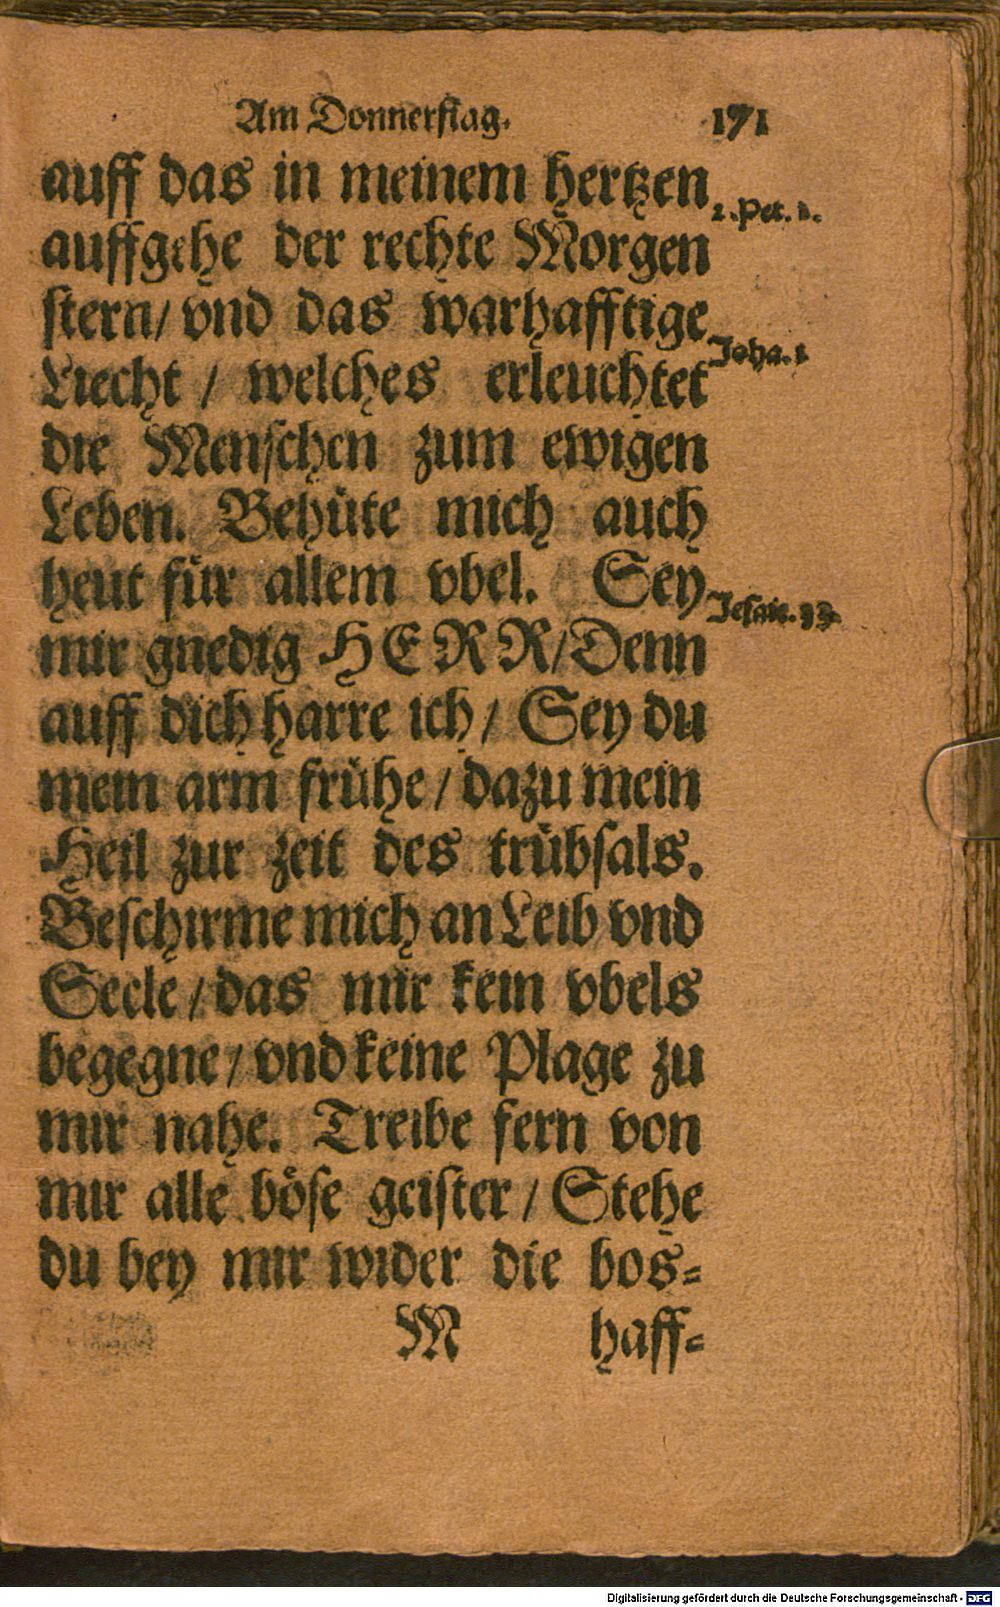 Am Donnerſtag. 171
auff das in meinem hertzen
2. Pet. 1.
auffgehe der rechte Morgen
ſtern/ vnd das warhafftige
Joha. 1
Liecht / welches erleuchtet
die Menſchen zum ewigen
Leben. Behüte mich auch
heut für allem vbel. Sey
Jeſaie. 33
mir gnedig HERR/ Denn
auff dich harre ich / Sey du
mein arm frühe / dazu mein
Heil zur zeit des trübſals.
Beſchirme mich an Leib vnd
Seele / das mir kein vbels
begegne / vnd keine Plage zu
mir nahe. Treibe fern von
mir alle böſe geiſter / Stehe
du bey mir wider die bos⸗
M haff⸗
Digitalisierung gefördert durch die Deutsche Forschungsgemeinschaft - DFG